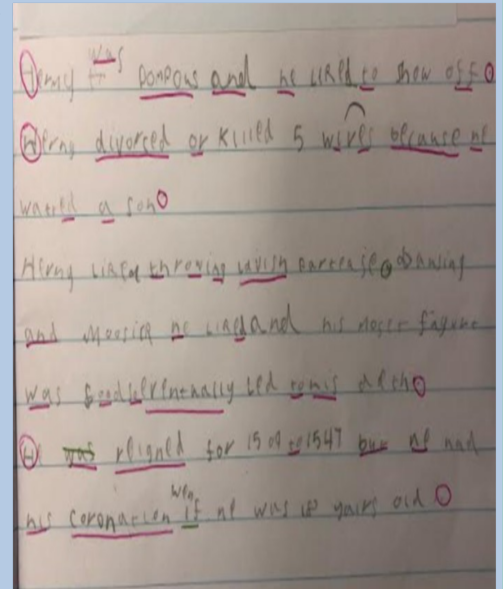 Henry was pompous and he liked to show off
Henry divorsed or killed 5 wives because he
wanted a son
Henry liked throwing lavish dansing
and he liked and his figure
was led to his deth
H reigned for 1509 to 1547 but he had
his coronation wen if he was years old